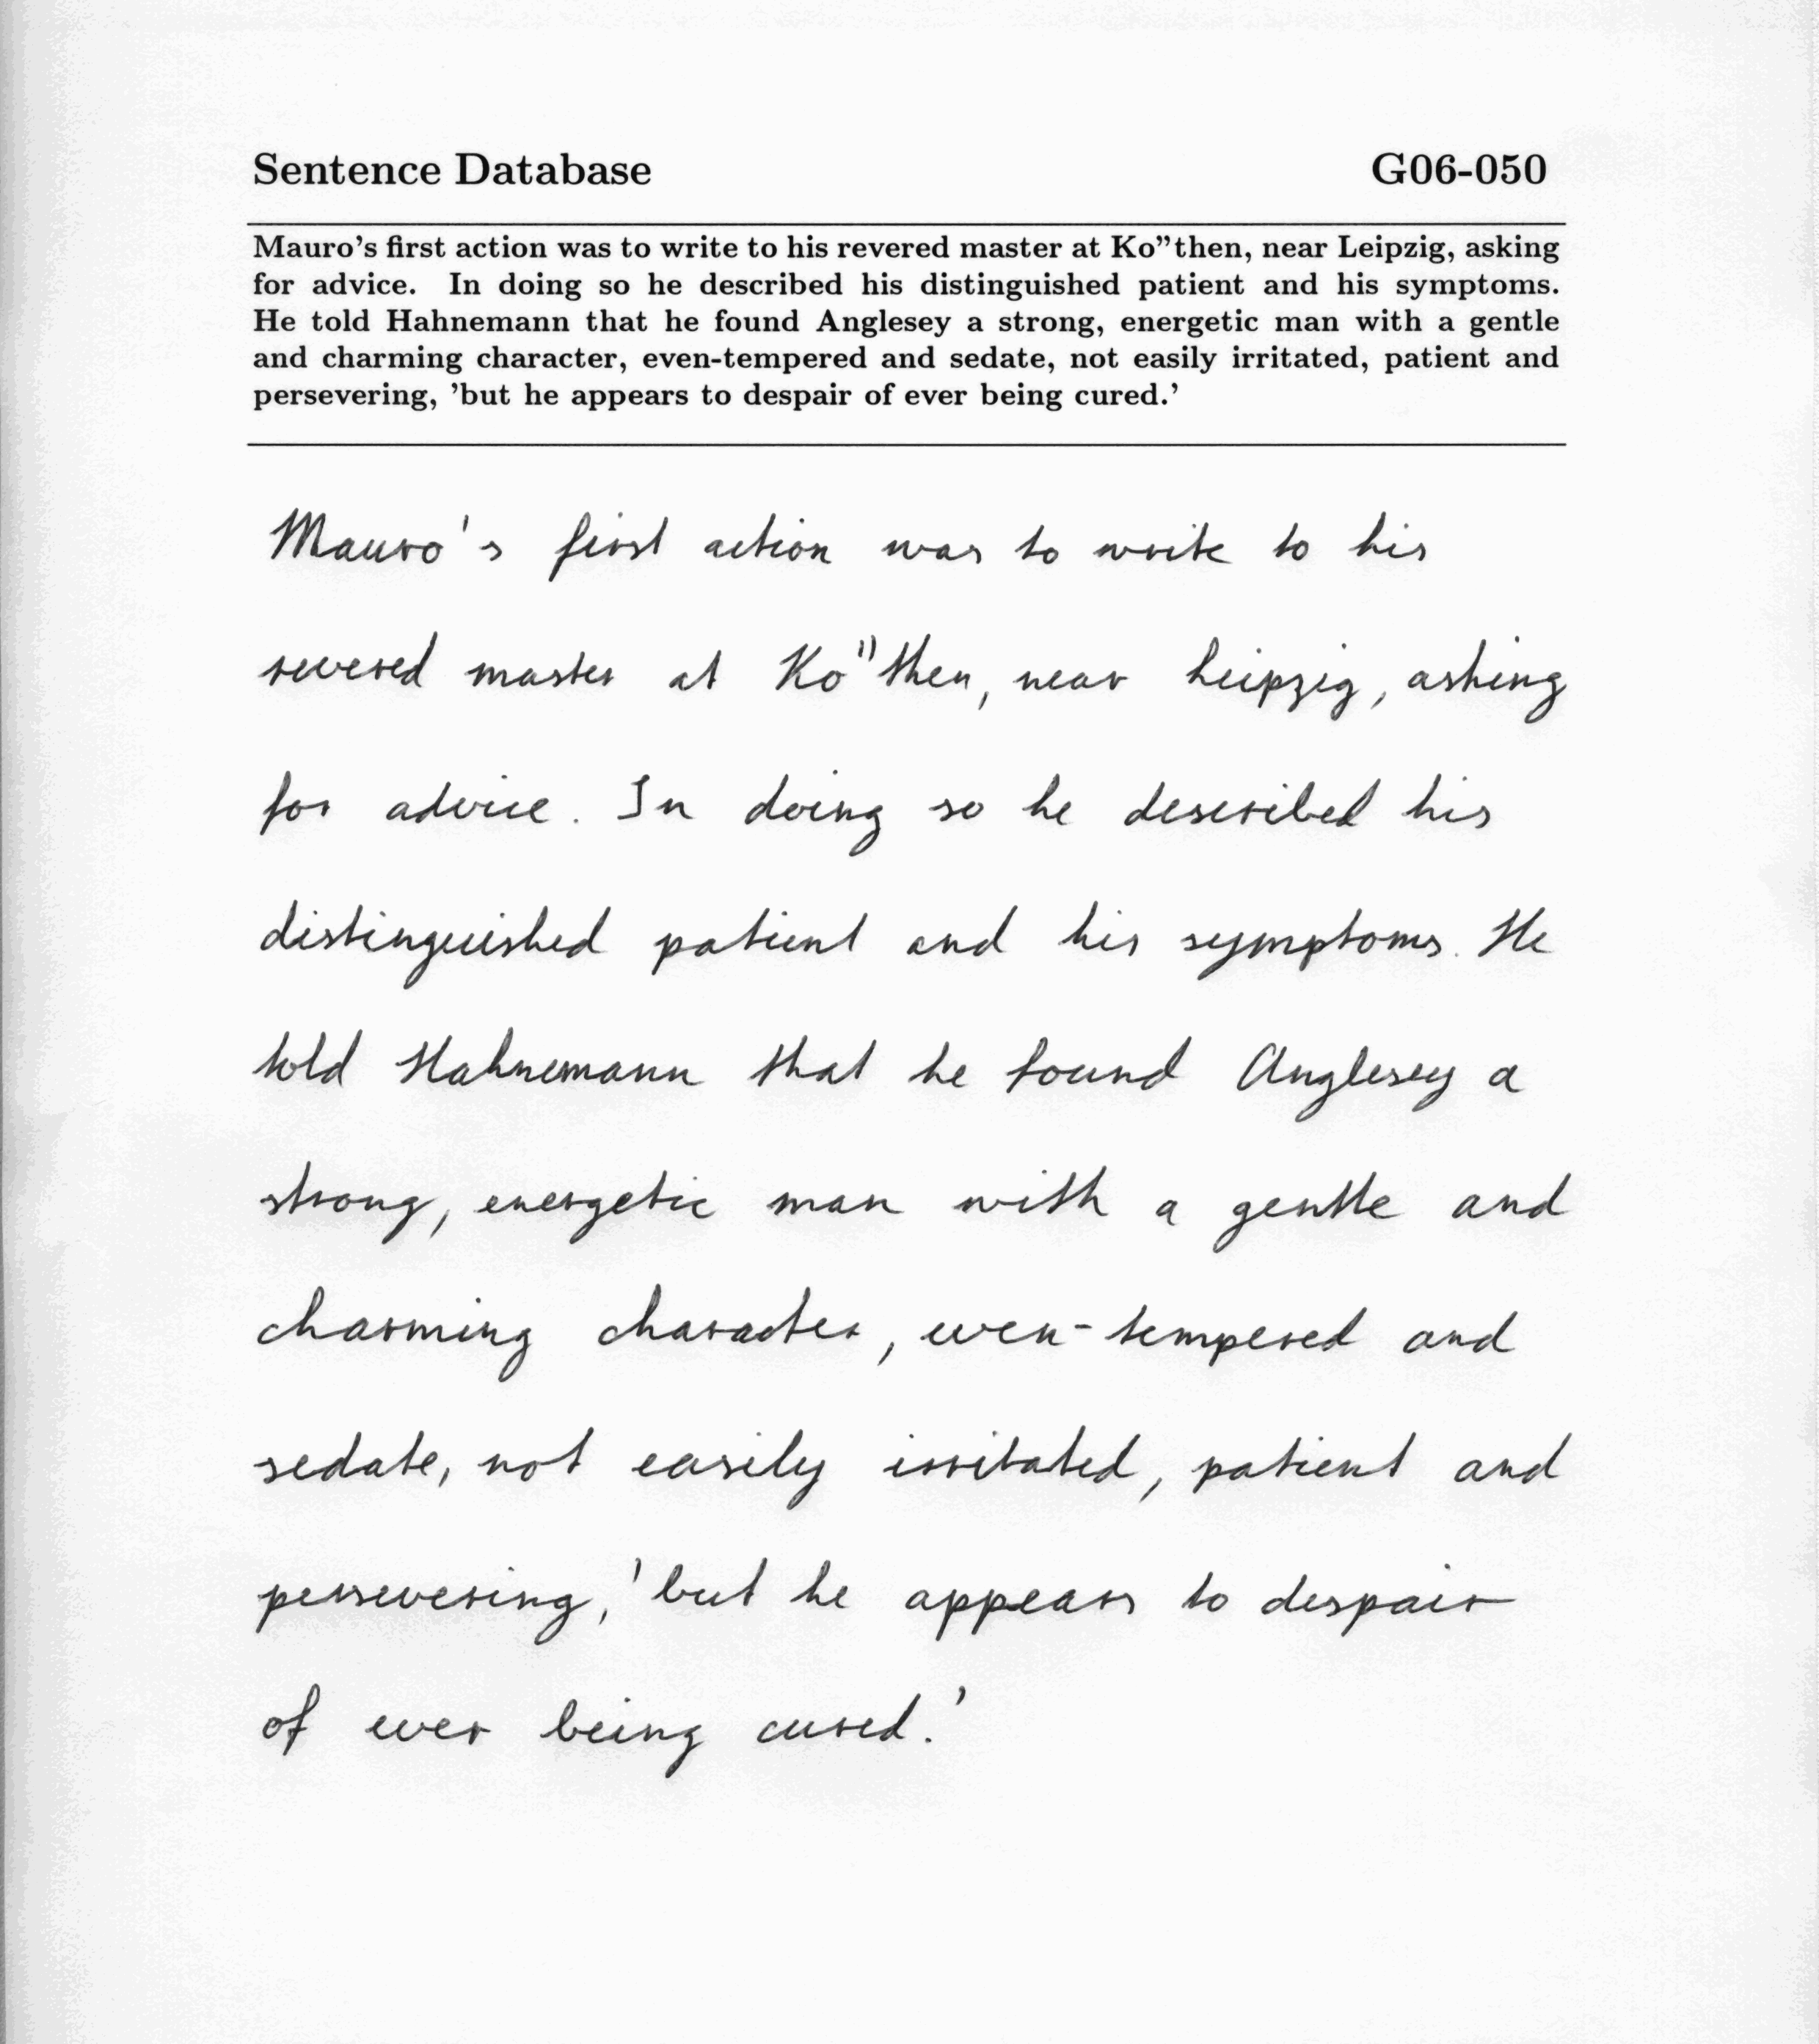 Sentence Database G06-050
Mauro's first action was to write to his revered master at Ko”then, near Leipzig, asking
for advice. In doing so he described his distinguished patient and his symptoms.
He told Hahnemann that he found Anglesey a strong, energetic man with a gentle
and charming character, even-tempered and sedate, not easily irritated, patient and
persevering, ’but he appears to despair of ever being cured.’
Mauro's first action was to write to his
revered master at Ko"then, near Leipzig, asking
for advice. In doing so he described his
distinguished patient and his symptoms. He
told Hahnemann that he found Anglesey a
strong, energetic man with a gentle and
charming character, even-tempered and
sedate, not easily irritated, patient and
persevering, 'but he appears to despair
of ever being cured.'